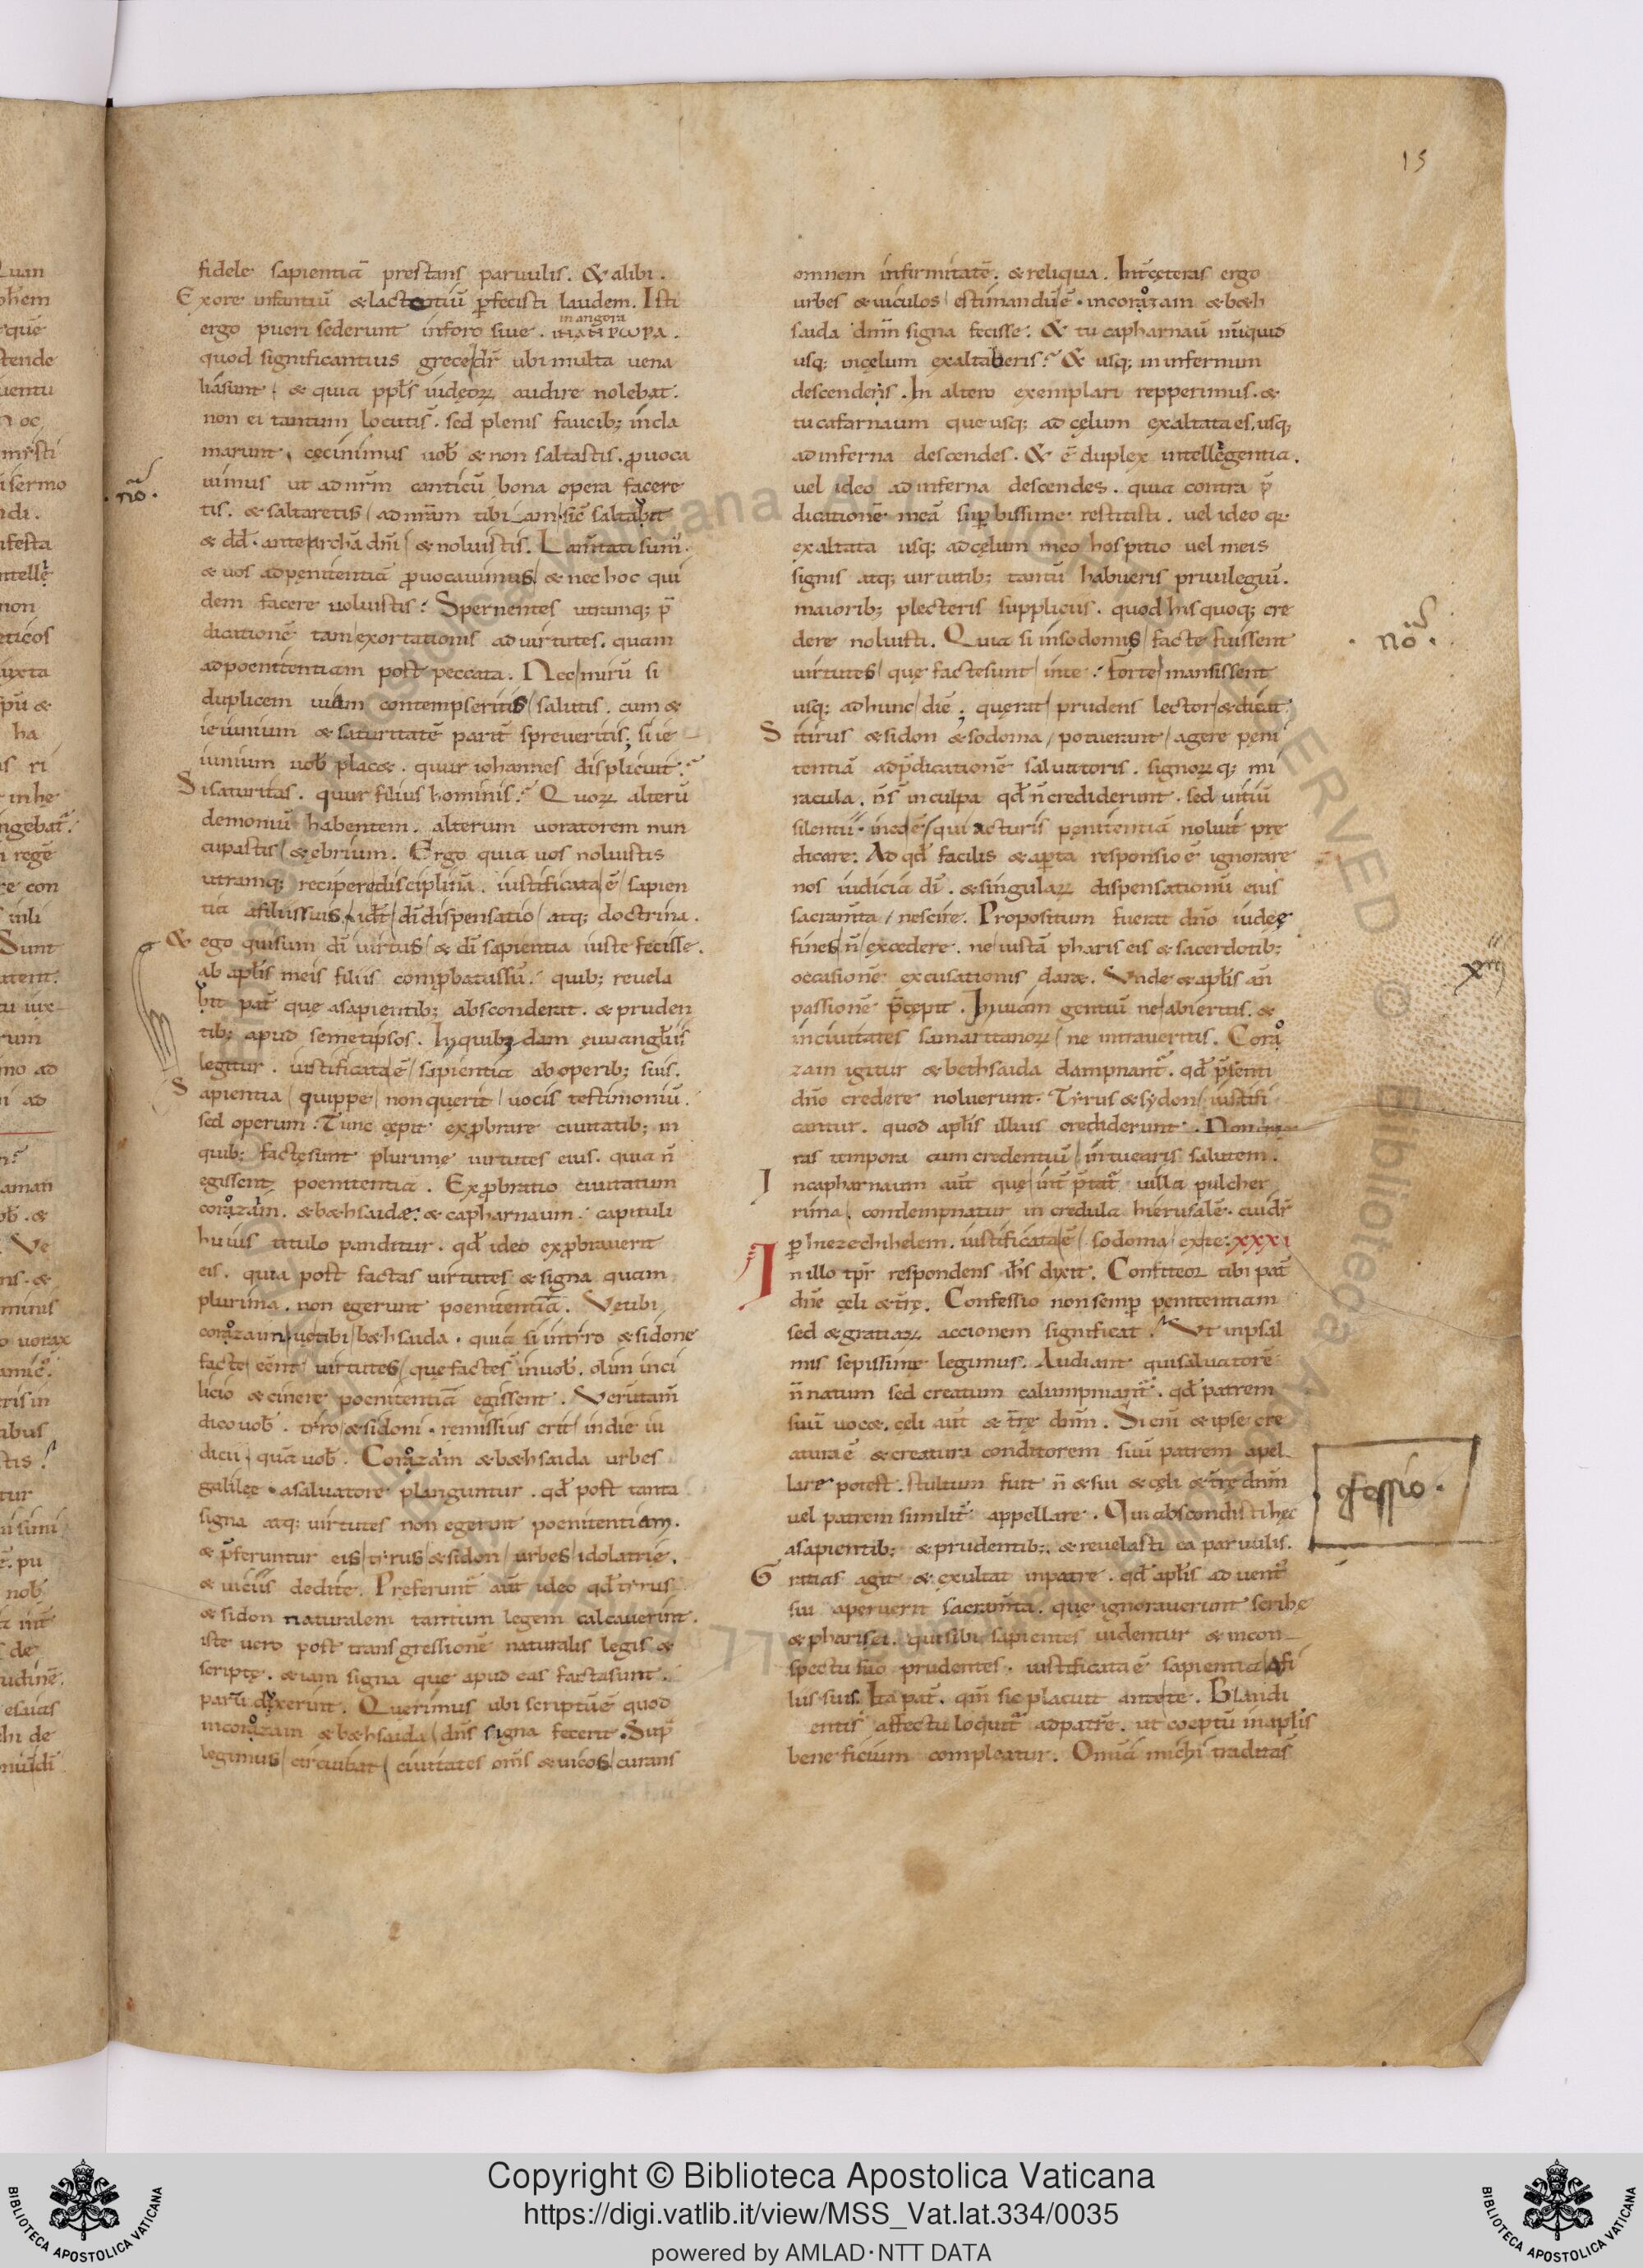 15
fidele sapientiā prestans paruulis. & alibi.
Exore infantiū & lactentiū ꝑfecisti laudem. Isti
ergo pueri sederunt inforo siue.
in angora
quod significantius grece dr̄ ubi multa uena
lia sunt. & quia ppl̄s iudęoꝝ audire nolebat.
non ei tantum locutiS. sed plenis faucib; incla
marunt. cęcinimus uob̄ & non saltastis. ꝓuoca
uimus ut ad nr̄m canticū bona opera facere
no.
& dd̄. ante archā dn̄i & noluistis. Lam̄tati sum.
& uos ad penitentiā ꝓuocauimus & nec hoc qui
dem facere uoluistis. Spernentes utramq; p̄
dicationē tam exortationis ad uirtutes. quam
ad poenitentiam post peccata. Nec mirū si
duplicem uiam contempseritis salutis. cum &
ieiunium & saturitatē parit̄ spreueritis; si ie
iunium uob̄ plac&. quur iohannes displicuit.
Si saturitas. quur filius hominis. Quoꝝ alterū
demoniū habentem. alterum uoratorem nun
cupastis & ebrium. Ergo quia uos noluistis
utramq; recipere disciplinā. iustificata ē sapien
tia a filiis suis. id ē di dispensatio atq; doctrina.
& ego qui sum di uirtus & di sapientia iuste fecisse.
ab apl̄is meis filiis comꝓbatus sū. quib; reuela
bit pat̄ que a sapientib; absconderat. & pruden
tib; apud semetipsos. In quibusdam euuangl̄iis
legitur. iustificata ē sapientia ab operib; suis.
Sapientia quippe non querit uocis testimoniū.
sed operum. Tunc cępit exꝓbrare ciuitatib; in
quib; factę sunt plurimę uirtutes eius. quia n̄
egissent poenitentia. Exꝓbratio ciuitatum
corozaim. & b&hsaidæ. & capharnaum. capituli
huius titulo panditur. qd̄ ideo exꝓbrauerit
eis. quia post factas uirtutes & signa quam
plurima. non egerunt poenitentiā. Ve tibi
corozaim ue tibi b&hsaida. quia si in tiro & sidone
facte eēnt uirtutes que facte s̄ in uob̄. olim in ci
licio & cinere poenitentiā egissent. Verūtam̄
dico uob̄. tiro & sidoni. remissius erit in die iu
dicii quā uob̄. Corozaim & b&hsaida urbes
galilee. a saluatore planguntur. qd̄ post tanta
signa atq; uirtutes non egerunt poenitentiam.
& p̄feruntur eis tirus & sidon urbes idolatrię.
& uiciis dedite. Preferunt̄ aūt ideo qd̄ tirus
& sidon naturalem tantum legem calcauerint.
iste uero post transgressionē naturalis legis &
scriptę. etiam signa que apud eas facta sunt.
parui duxerint. Querimus ubi scriptū ē quod
in corozaim & b&hsaida dn̄s signa fecerit. Sup̄
legimus circuibat ciuitates om̄s & uicos curans
omnem infirmitatē. & reliqua. Int̄ cęteras ergo
urbes & uiculos estimandū ē. in corozaim & b&h
saida dn̄m signa fecisse. & tu capharnaū nūquid
usq; in cęlum exaltaberis. & usq; in infernum
descendens. In altero exemplari repperimus. &
tu cafarnaum que usq; ad cęlum exaltata es. usq;
ad inferna descendes. & ē duplex intellegentia.
uel ideo ad inferna descendes. quia contra p̄
dicationē meā suꝑbissime restitisti. uel ideo q̄
exaltata usq; ad cęlum meo hospitio uel meis
signis atq; uirtutib; tantū habueris priuilegiū.
maiorib; plecteris suppliciis. quod his quoq; cre
dere noluisti. Quia si in sodomis facte fuissent
no.
uirtutes que facte sunt in te. forte mansissent
usq; ad hunc diē; querat prudens lector & dicat.
Si tirus & sidon & sodoma potuerunt agere peni
tentiā ad p̄dicationē saluatoris. signoꝝq; mi
racula. n̄ s̄ in culpa qd̄ n̄ crediderunt. sed uitiū
silentii in eo ē qui acturis penitentiā noluit pre
dicare. Ad qd̄ facilis & aꝑta responsio ē ignorare
nos iudicia di. & singulaꝝ dispensationū eius
sacram̄ta nescire. Propositum fuerat dn̄o iudęę
fines n̄ excedere. ne iustā phariseis & sacerdotib;
occasionē excusationis dar&. Vnde & apl̄is an̄
passionē p̄cepit. In uiam gentiū ne abieritis. &
in ciuitates samaritanoꝝ ne intraueritis. Coro
zaim igitur & bethsaida dampnant̄. qd̄ p̄senti
dn̄o credere noluerunt. Tyrus & sydon iustifi
cantur. quod apl̄is illius crediderunt. Non que
ras tempora cum credentiū intuearis salutem.
In capharnaum aūt que int̄p̄tat̄ uilla pulcher
rima. condempnatur incredula hierusalē. cui dr̄
ꝑ hiezechihelem. iustificata ē sodoma ex te. xxxi
In illo tp̄r respondens ih̄s dixit. Confiteor tibi pat̄
dn̄e cęli & t̄rę. Confessio non semꝑ penitentiam
sed & gratiaꝝ accionem significat. Vt in psal
mis sepissime legimus. Audiant qui saluatorē
n̄ natum sed creatum calumpniant̄. qd̄ patrem
suū uoc&. cęli aūt & t̄rę dn̄m. Si eni & ipse cre
atura ē & creatura conditorem suū patrem apel
lare potest. stultum fuit n̄ & sui & cęli & t̄rę dn̄m
ꝯfessio.
uel patrem similit̄ appellare. Qui abscondisti hęc
a sapientib; & prudentib;. & reuelasti ea paruulis.
Gratias agit & exultat in patre. qd̄ apl̄is aduent̄
sui aperuerit sacram̄ta. que ignorauerunt scribę
& pharisei. qui sibi sapientes uidentur & in con
spectu suo prudentes. iustificata ē sapientia a fi
liis suis. Ita pat̄. qm̄ sic placuit ante te. Blandi
entis affectu loquit̄ ad patrē. ut coeptū in apl̄is
beneficium compleatur. Omnia michi tradita s̄
Copyright © Biblioteca Apostolica Vaticana
https://digi.vatlib.it/view/MSS_Vat.lat.334/0035
powered by AMLAD·NTT DATA
BIBLIOTECA APOSTOLICA VATICANA
BIBLIOTECA APOSTOLICA VATICANA